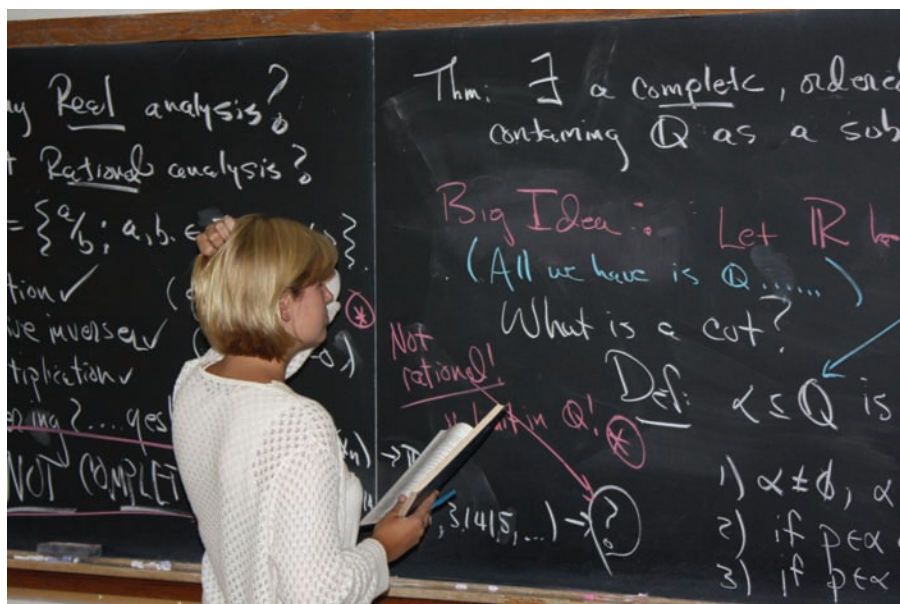 ny Real analysis?
t Rational analysis?
= {a/b; a, b. ∈ }.
tion ✓
ive inverses ✓
tiplication ✓
ering?....yes!
NOT COMPLET
n) → π
, 3.1415, ...) → ?
Thm: ∃ a complete, ordered
containing Q as a sub
Big Idea: Let ℝ be
(All we have is Q......)
What is a cut?
Not
rational!
in Q! *
Def: α ⊆ Q is
1) α ≠ ϕ, α
2) if p∈α
3) if p∈α